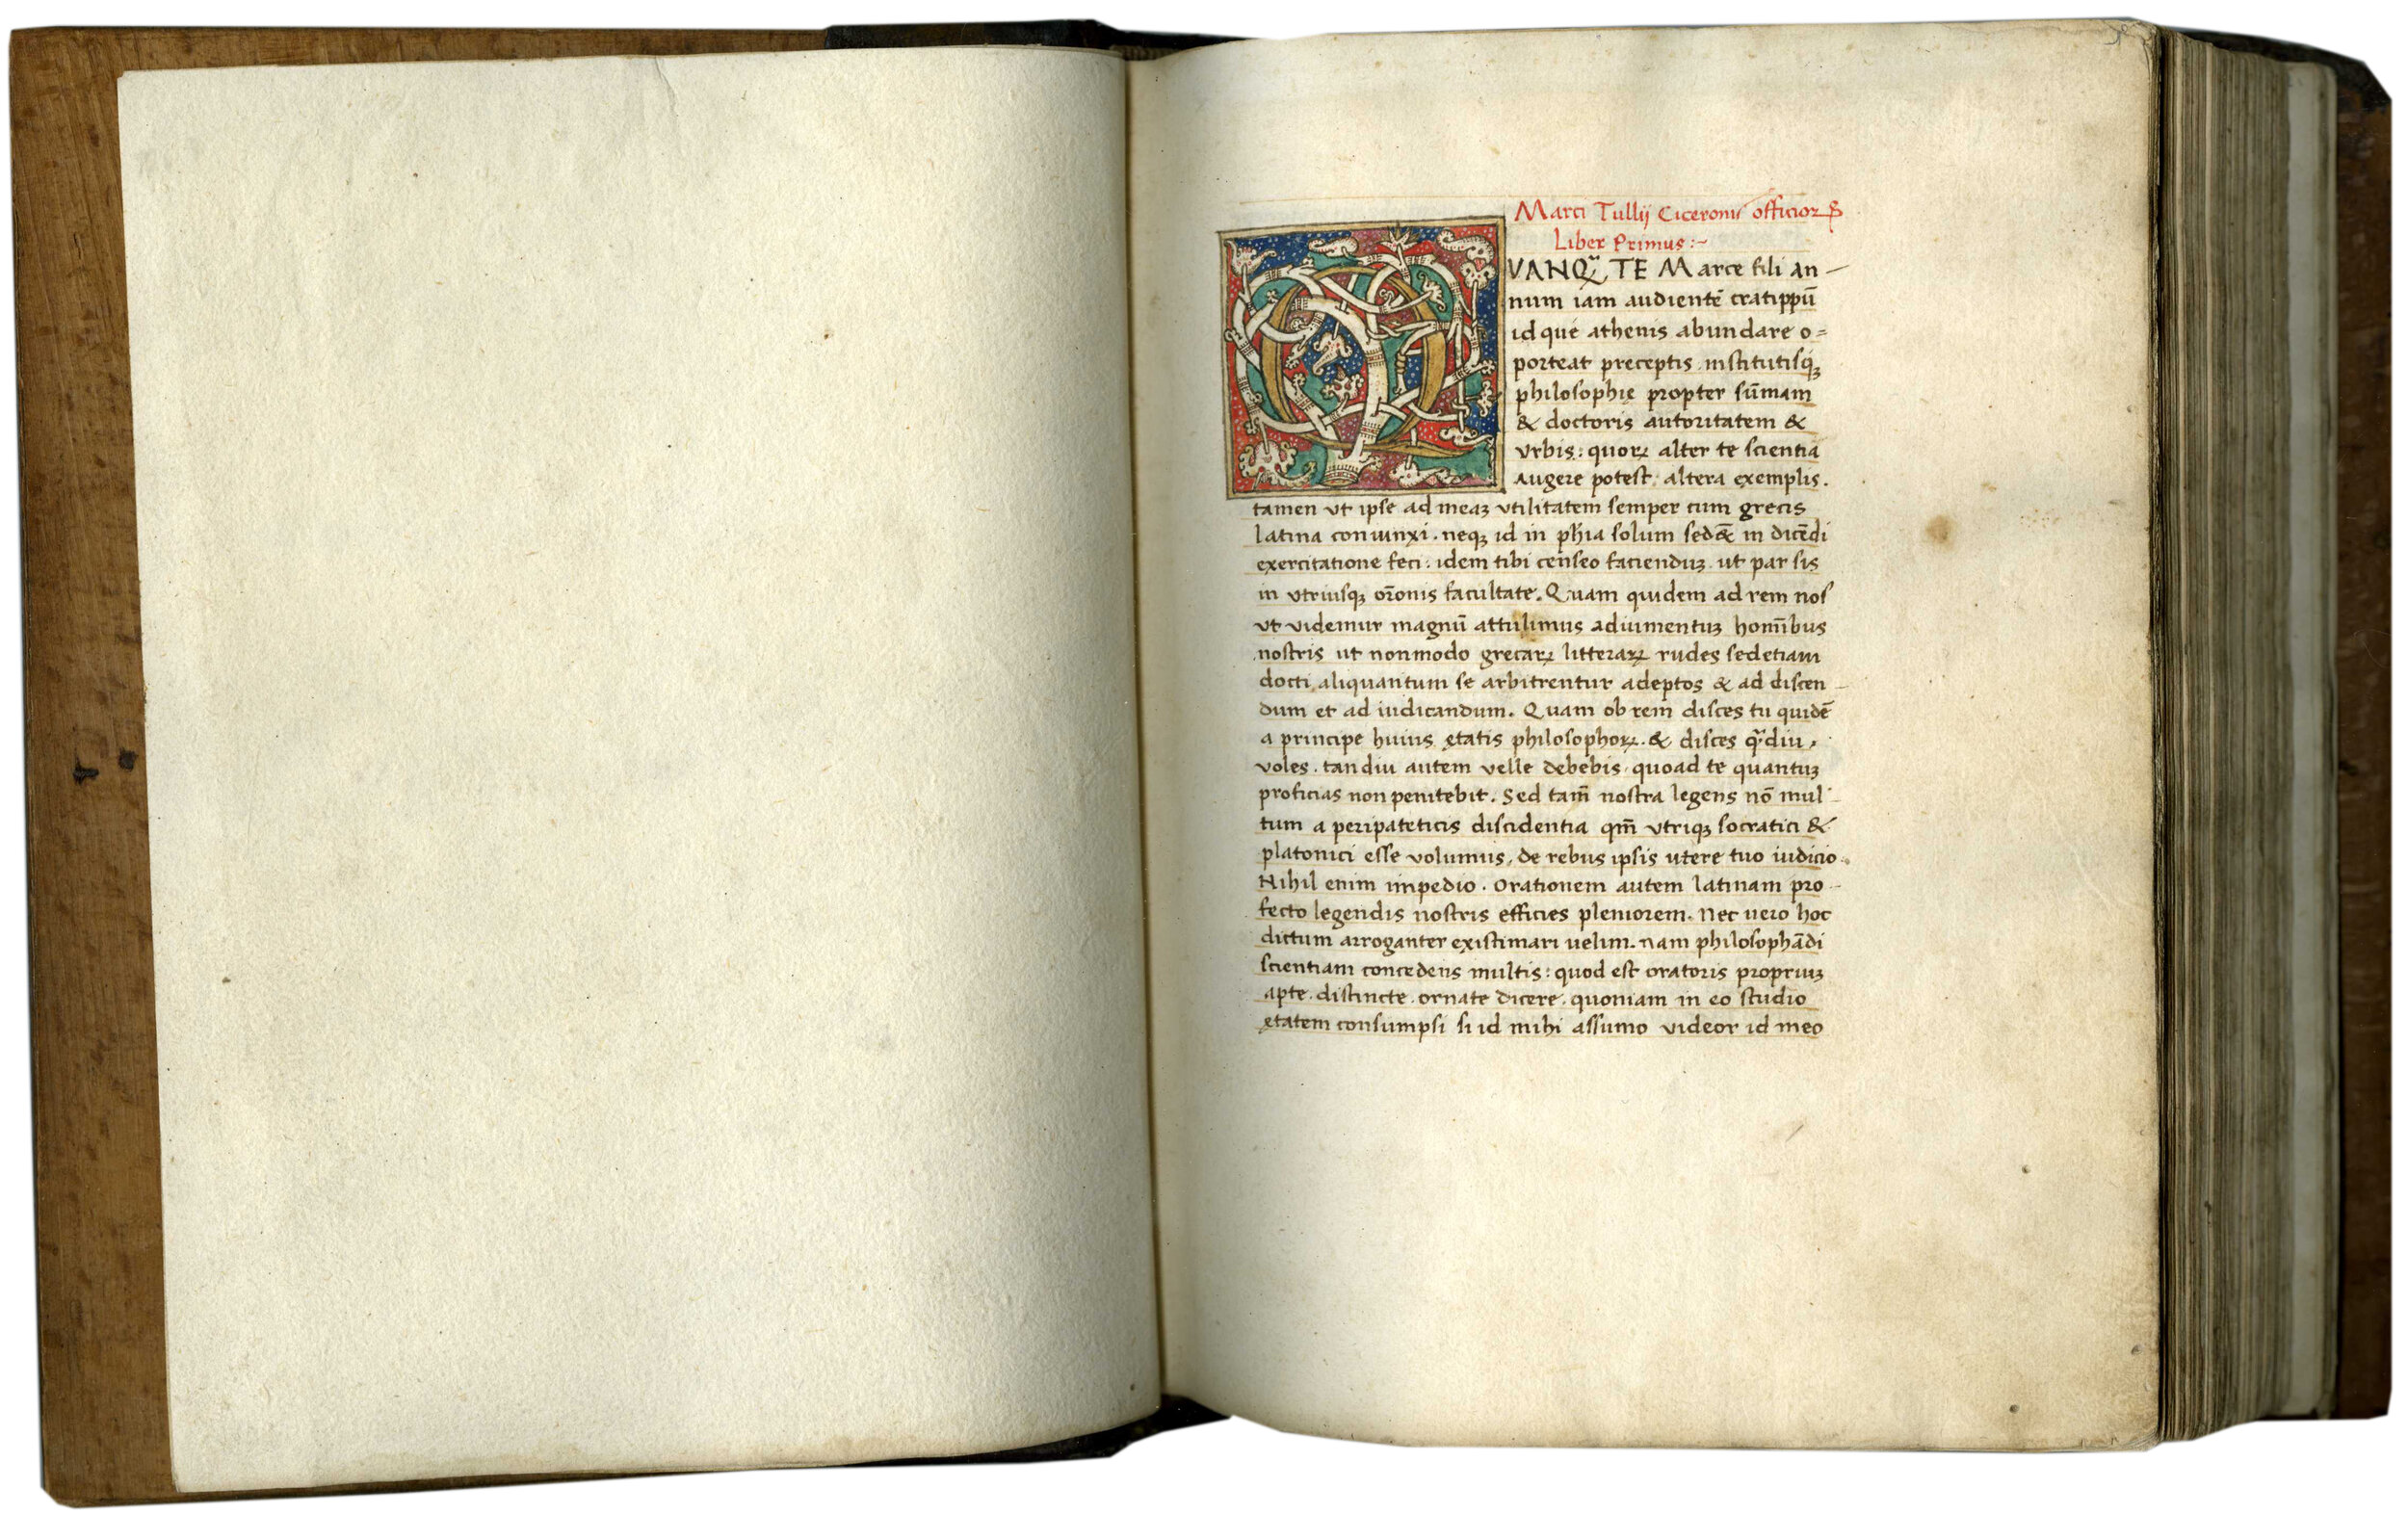 Marci Tullij Ciceronis officioꝝ
Liber Primus :~
QVANQᷓ TE Marce fili an-
num iam audientē cratippū
id que athenis abundare o=
porteat preceptis institutisqꝫ
philosophię propter sūmam
& doctoris autoritatem &
vrbis : quoꝝ alter te scientia
augere potest, altera exemplis.
tamen vt ipse ad meaꝫ vtilitatem semper cum grecis
latina coniunxi. neqꝫ id in phīa solum sed & in dicēdi
exercitatione feci : idem tibi censeo facienduꝫ. ut par sis
in vtriusqꝫ orōnis facultate. Quam quidem ad rem nos
vt videmur magnū attulimus adiumentuꝫ homībus
nostris ut non modo grecaꝝ litteraꝝ rudes sed etiam
docti aliquantum se arbitrentur adeptos & ad discen-
dum et ad iudicandum. Quam ob rem disces tu quidē
a principe huius ętatis philosophoꝝ. & disces qᷓdiu
voles. tandiu autem velle debebis. quoad te quantuꝫ
proficias non penitebit. Sed tam̄ nostra legens nō mul-
tum a peripateticis discidentia qm̄ vtriqꝫ socratici &
platonici esse volumus, de rebus ipsis utere tuo iudicio.
Nihil enim impedio. Orationem autem latinam pro-
fecto legendis nostris efficies pleniorem. Nec uero hoc
dictum arroganter existimari uelim. nam philosophādi
scientiam concedens multis : quod est oratoris propriuꝫ
apte. distincte. ornate dicere. quoniam in eo studio
ętatem consumpsi si id mihi assumo videor id meo